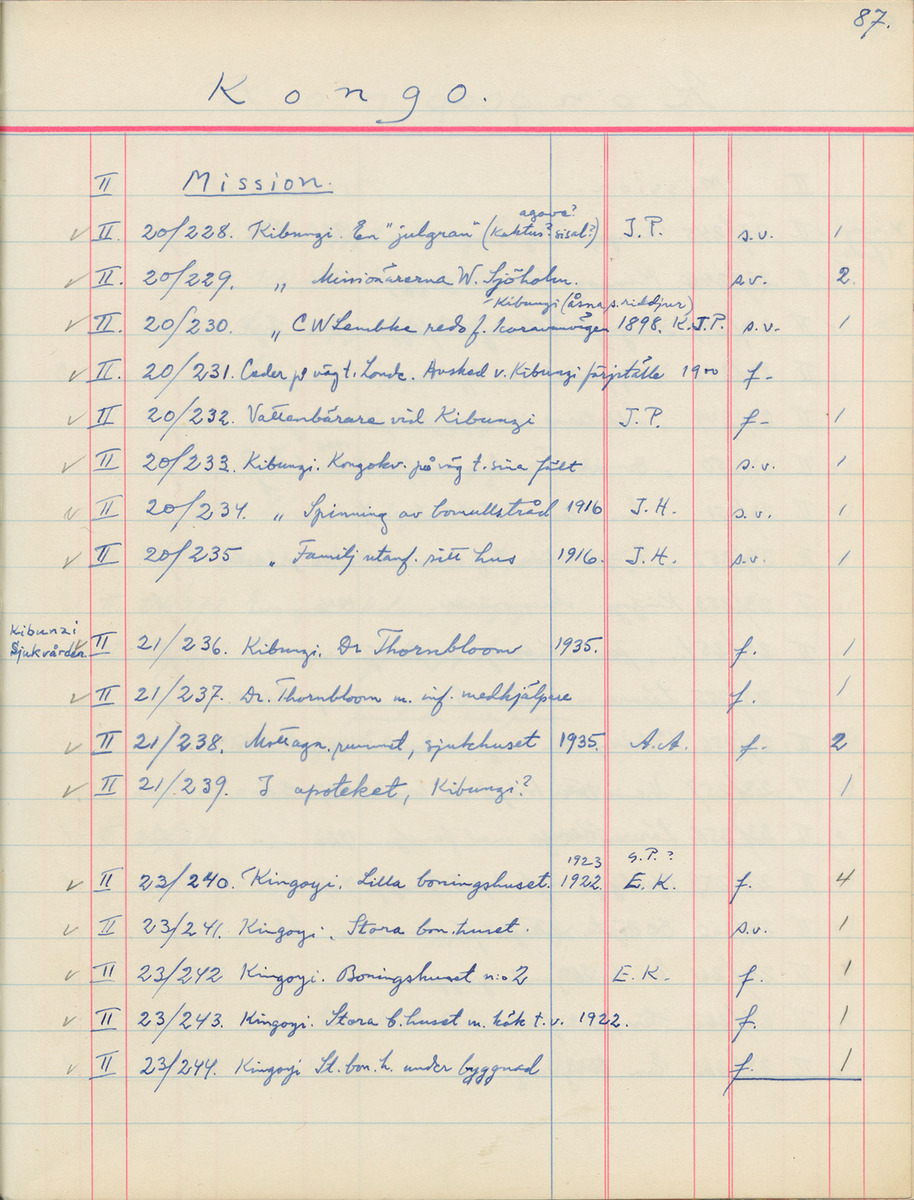 87.
Kongo.
II Mission.
agave?
✓ II. 20/228. Kibunzi. En "julgran" (kaktus? sisal?) J.P. s.v. 1
✓ II. 20/229. " Missionärerna W. Sjöholm. s.v. 2.
- Kibunzi (åsna s. riddjur)
✓ II. 20/230. " C W Lembke redo f. karavanvägen 1898. K.J.P. s.v. 1
✓ II. 20/231. Ceder på väg t. Avsked v. Kibunzi färjställe 1900 f-
✓ II 20/232. Vattenbärare vid Kibunzi J.P. f- 1
✓ II 20/233. Kibunzi. Kongokv. på väg t. sina fält s.v. 1
✓ II 20/234. " Spinning av bomullstråd 1916 J.H. s.v. 1
✓ II 20/235 " Familj utanf. sitt hus 1916. J.H. s.v. 1
Kibunzi
Sjukvården ✓ II 21/236. Kibunzi. Dr Thornbloom 1935. f. 1
✓ II 21/237. Dr. Thornbloom m. inf. medhjälpare f. 1
✓ II 21/238. Mottagn. rummet, sjukhuset 1935. A.A. f. 2
✓ II 21/239. I apoteket, Kibunzi? 1
1923 G.P.?
✓ II 23/240. Kingoyi. Lilla boningshuset. 1922. E.K. f. 4
✓ II 23/241. Kingoyi. Stora bon.huset. s.v. 1
✓ II 23/242 Kingoyi. Boningshuset n:o 2 E.K. f. 1
✓ II 23/243. Kingoyi. Stora b.huset m. kök t.v. 1922. f. 1
✓ II 23/244. Kingoyi St. bon. h. under byggnad f. 1